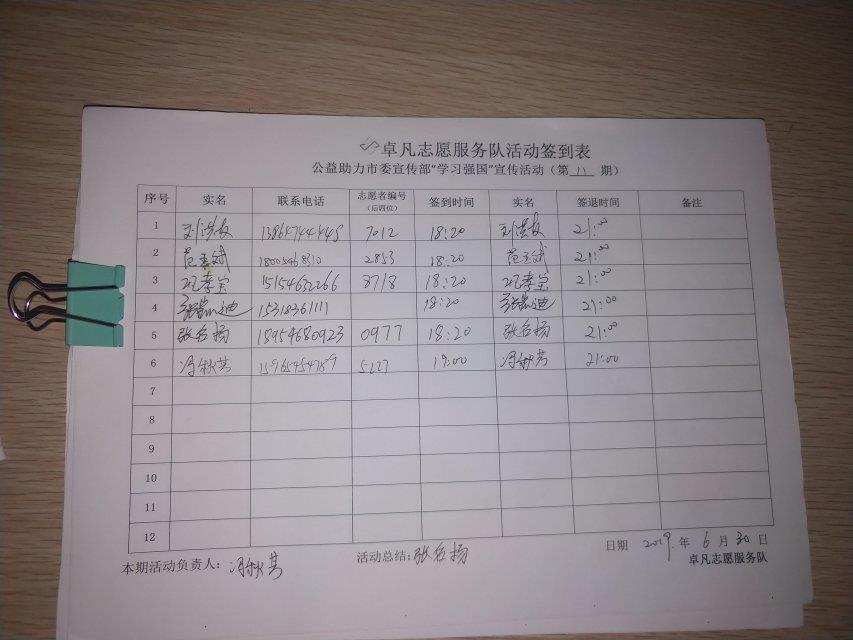 卓凡志愿服务队活动签到表
公益助力市委宣传部“学习强国”宣传活动（第 11 期）
序号 实名 联系电话 志愿者编号（后四位） 签到时间 实名 签退时间 备注
1 13864744448 7012 18:20 21:00
2 范玉斌 18005468310 2853 18:20 范玉斌 21:00
3 15154632266 8718 18:20 21:00
4 张瑞迪 15318361111 18:20 张瑞迪 21:00
5 张名扬 18954680923 0977 18:20 张名扬 21:00
6 冯秋芳 15965454789 5227 19:00 冯秋芳 21:00
7
8
9
10
11
12
日期 2019 年 6 月 30 日
本期活动负责人：冯秋芳 活动总结：张名扬 卓凡志愿服务队